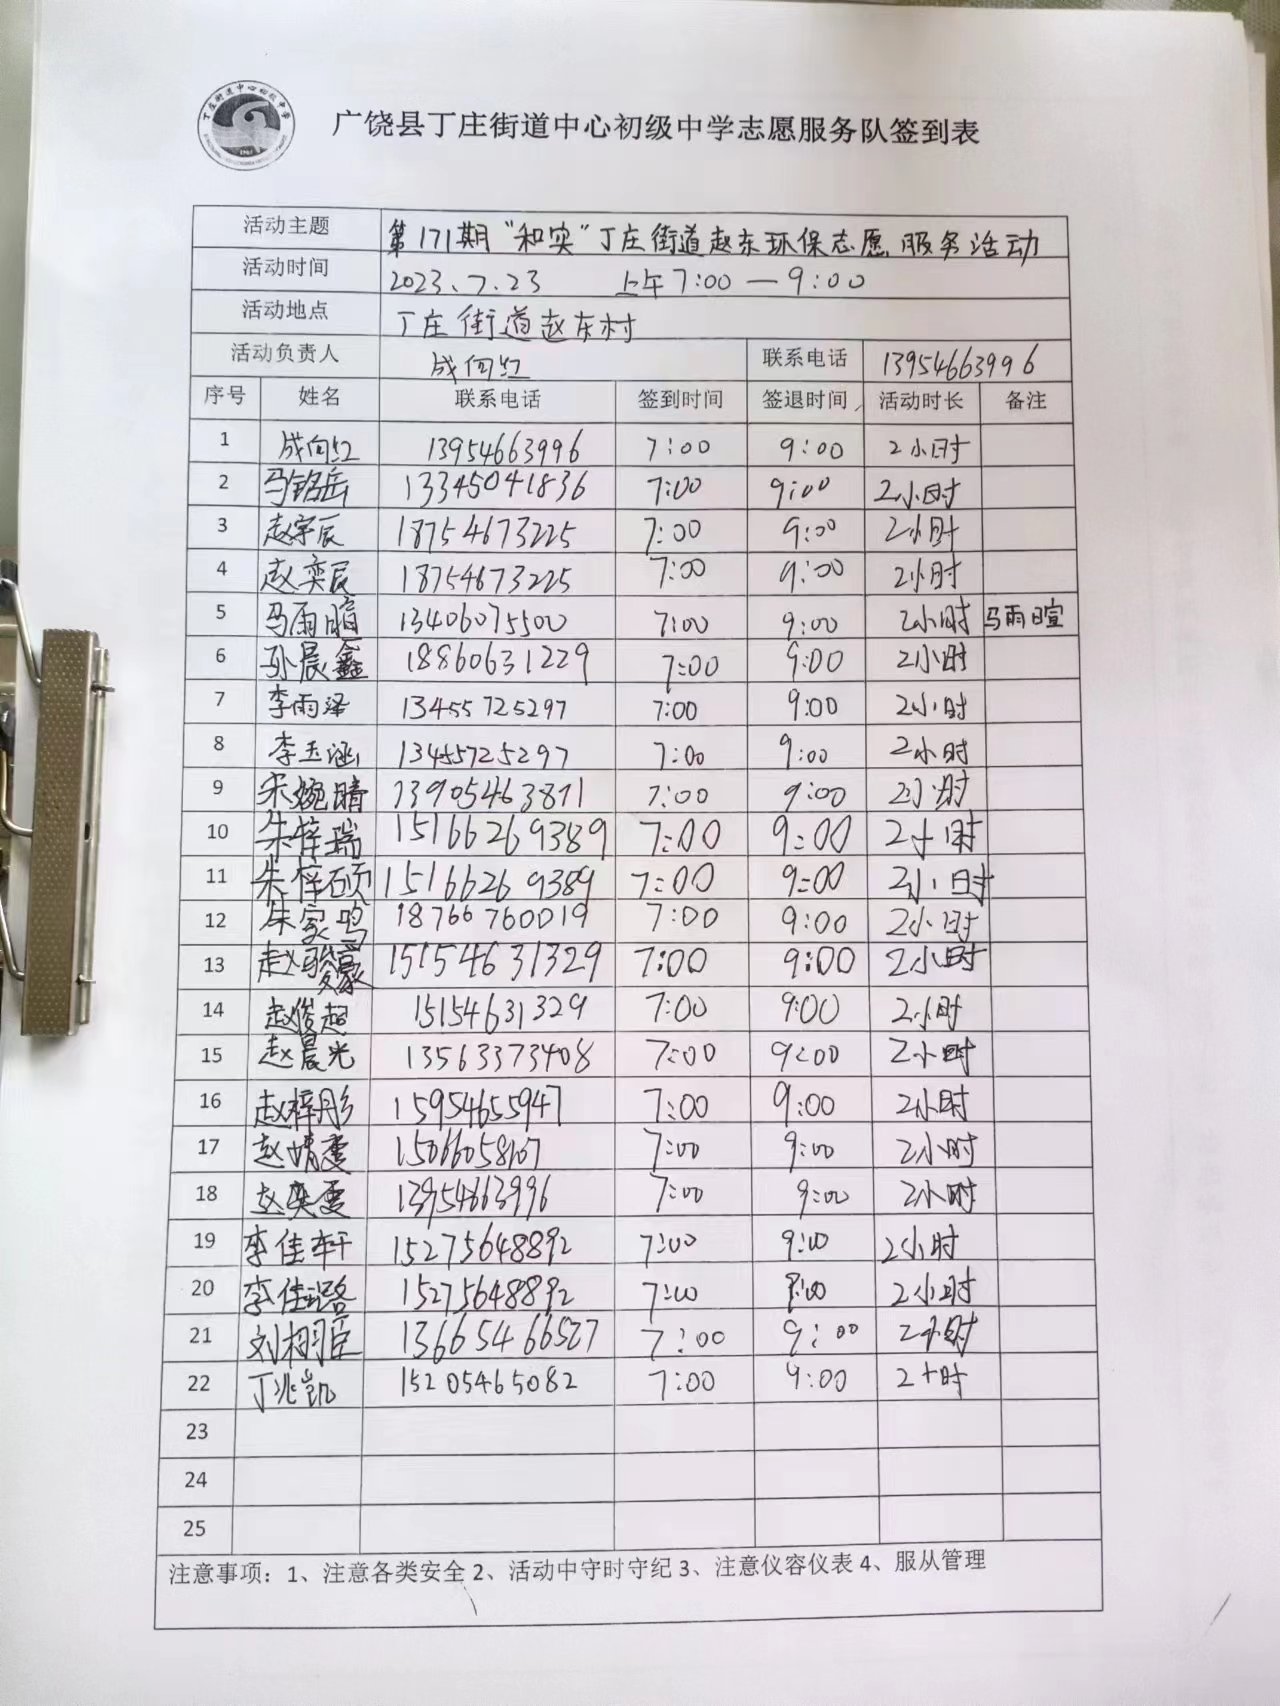 丁庄街道中心初级中学
广饶县丁庄街道中心初级中学志愿服务队签到表
活动主题 第171期“和实”丁庄街道赵东环保志愿服务活动
活动时间 2023.7.23 上午7:00—9:00
活动地点 丁庄街道赵东村
活动负责人 成向红 联系电话 13954663996
序号 姓名 联系电话 签到时间 签退时间 活动时长 备注
1 成向红 13954663996 7:00 9:00 2小时
2 马铭岳 13345041836 7:00 9:00 2小时
3 赵宇辰 18754673225 7:00 9:00 2小时
4 赵奕辰 18754673225 7:00 9:00 2小时
5 马雨暄 13406075500 7:00 9:00 2小时 马雨暄
6 孙晨鑫 18860631229 7:00 9:00 2小时
7 李雨泽 13455725297 7:00 9:00 2小时
8 李玉涵 13455725297 7:00 9:00 2小时
9 宋婉晴 13905463811 7:00 9:00 2小时
10 朱梓瑞 15166269389 7:00 9:00 2小时
11 朱梓硕 15166269389 7:00 9:00 2小时
12 朱家鸣 18766760019 7:00 9:00 2小时
13 赵骏豪 15154631329 7:00 9:00 2小时
14 赵俊超 15154631329 7:00 9:00 2小时
15 赵晨光 13563373408 7:00 9:00 2小时
16 赵梓彤 15954655947 7:00 9:00 2小时
17 赵婧雯 15066058107 7:00 9:00 2小时
18 赵奕雯 13954663996 7:00 9:00 2小时
19 李佳轩 15275648892 7:00 9:00 2小时
20 李佳璐 15275648892 7:00 9:00 2小时
21 刘栩臣 13665466527 7:00 9:00 2小时
22 丁兆凯 15205465082 7:00 9:00 2小时
23
24
25
注意事项：1、注意各类安全 2、活动中守时守纪 3、注意仪容仪表 4、服从管理